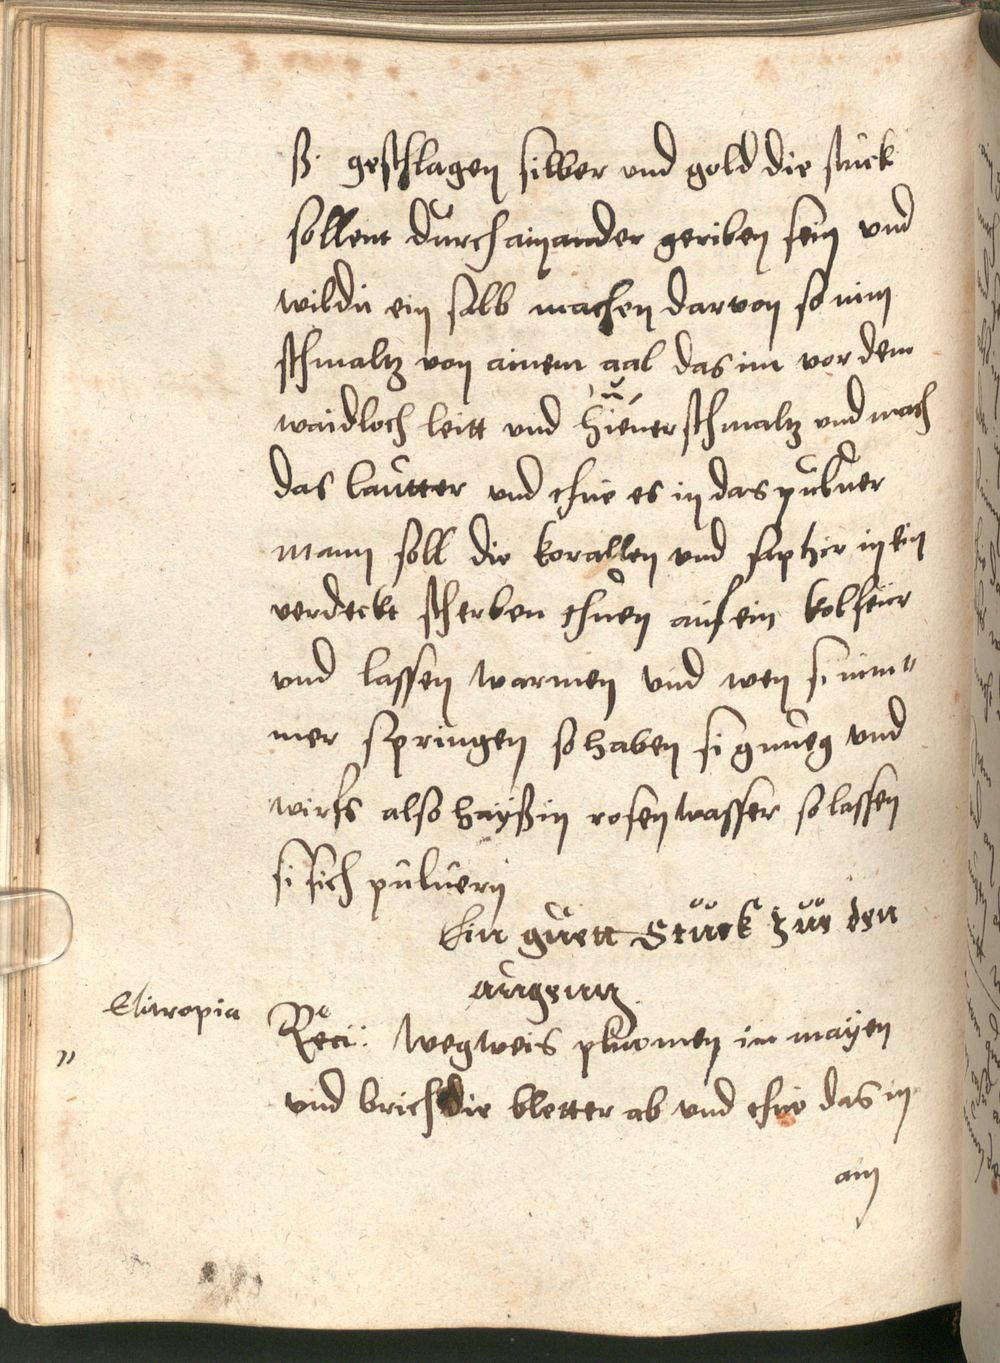 ß. geschlagen silber und gold die stuck
sollent durch ainander geriben sein und
wildu ein salb machen darvon so nim
schmaltz von ainem aal das im vor dem
waidloch leitt und hiener schmaltz und mach
das lautter und thue es in das puluer
mann soll die korallen und saphir in ein
verdeckt scherben thuen auf ein kolfeur
und lassen warmen und wen si nim"
mer springen so haben si gnueg und
wirfs also hayß in rosen wasser so lassen
si sich puluern
Ein guett Stuck zue den
augenn
Elitropia
Reci: wegweis pluomen im mayen
"
und brich die bletter ab und thue das in
ain